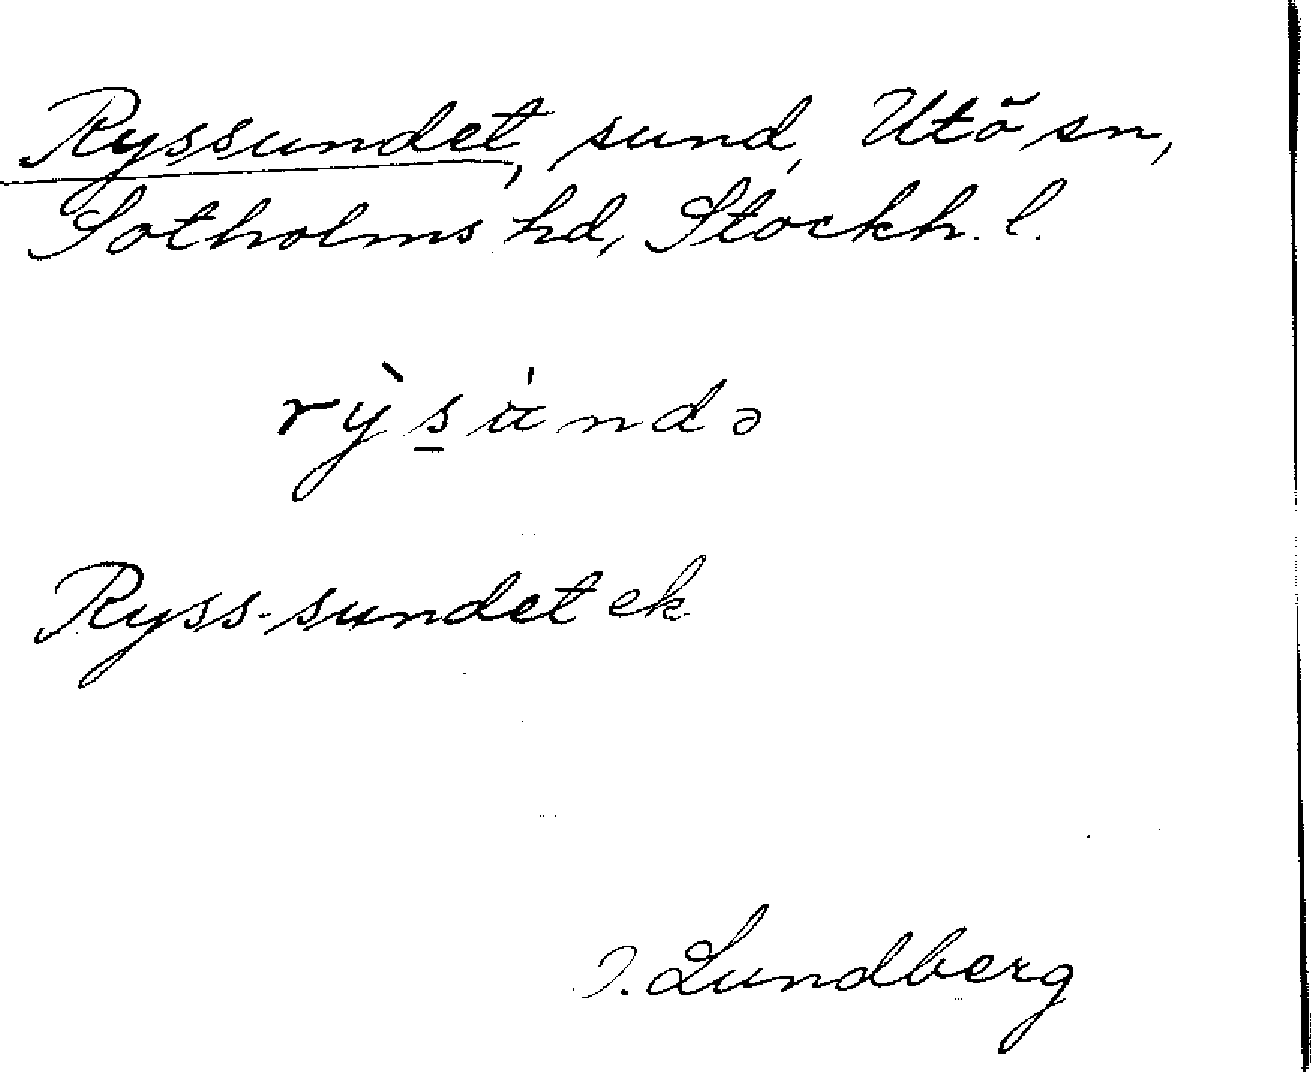 Ryssundet, sund, Utö sn,
Sotholms hd, Stockh. l.
rỳsu̍ndə
Ryss-sundet ek
Lundberg